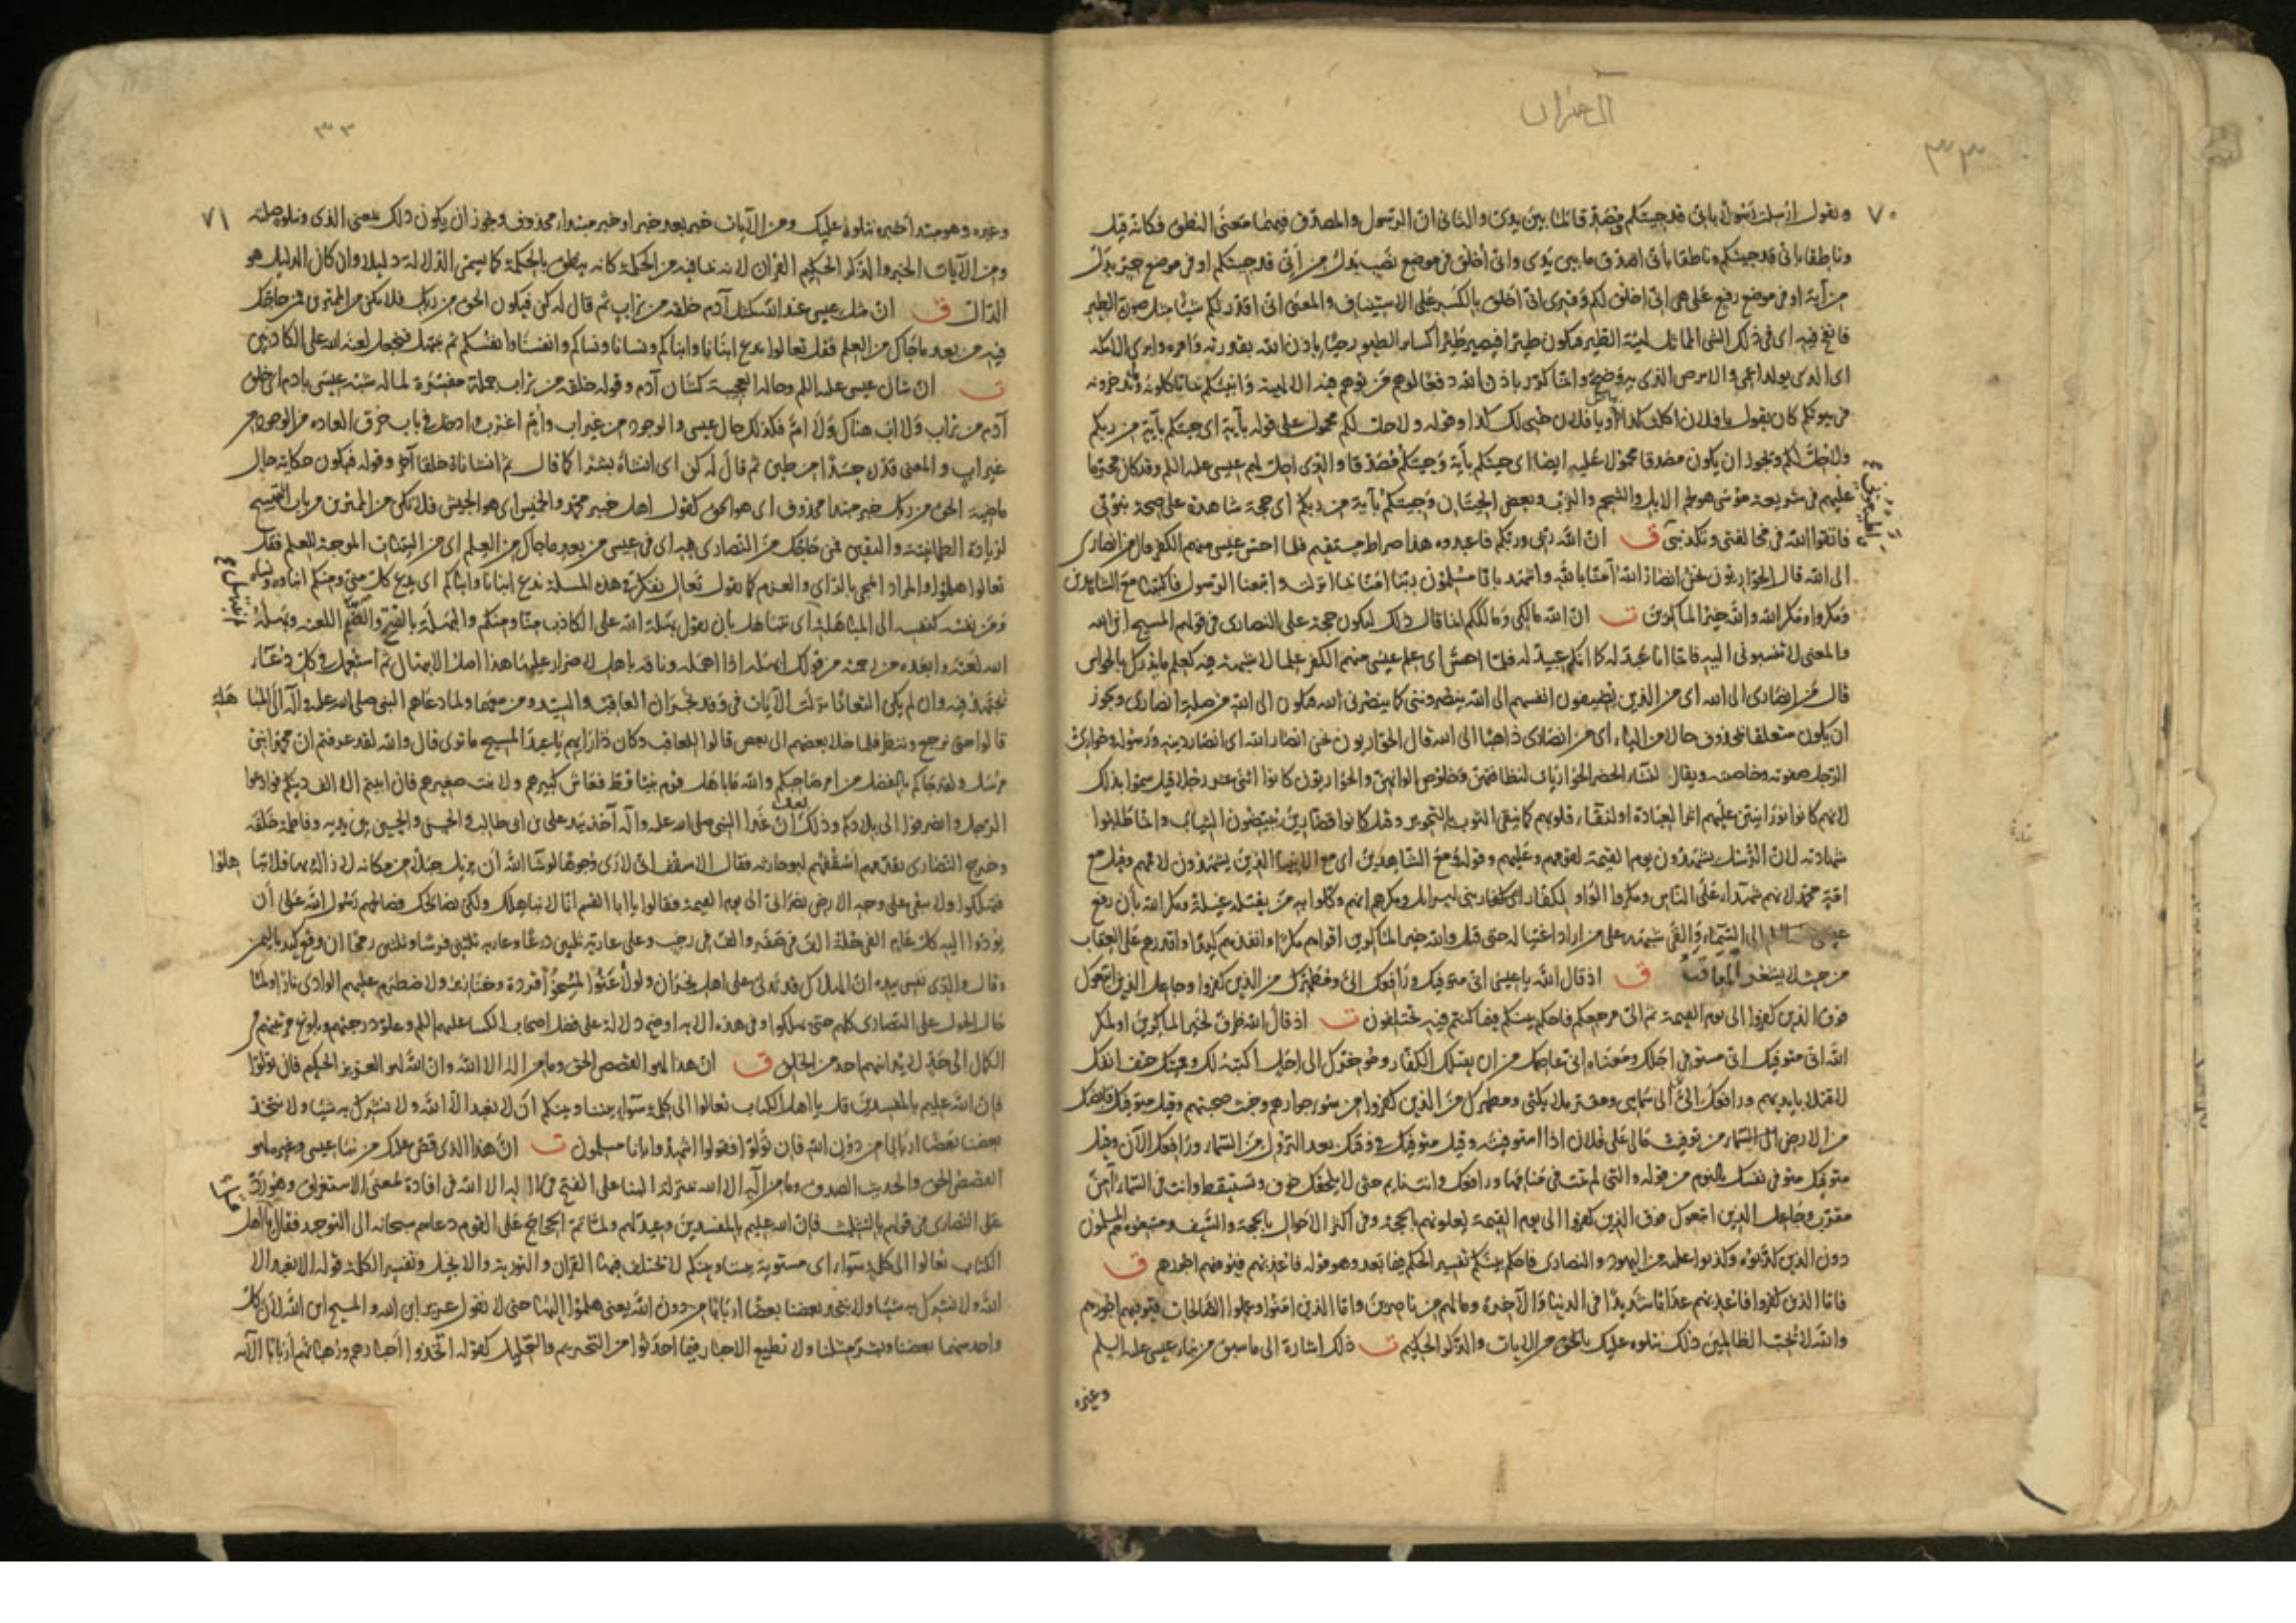 آل عمران
٣٣
٧٠
ويقول ارسلت رسولا باني قد جيتكم ومصدقا لما بين يدي والثاني ان الرسول والمصدق فيهما معنى النطق فكانه قيل
وناطقا باني قد جيتكم وناطقا باني اصدق ما بين يدي واني اخلق في موضع نصب بدل من اني قد جيتكم او في موضع جر بدل
من آية او في موضع رفع على هي اني اخلق لكم وقرئ اني اخلق بالكسر على الاستيناف والمعنى اني اقدر لكم شيئا مثل صورة الطير
فانفخ فيه اى في ذلك الشى المماثل لهيئة الطير فيكون طيرا فيصير طيرا كساير الطيور حيا باذن الله بقدرته وامره وابرئ الاكمه
اى الذى يولد اعمى والابرص الذى به وضح وانما كرر باذن الله دفعا لوهم من توهم فيه الالهية وانبئكم بما تاكلونه وتدخرونه
في بيوتكم كان يقول يا فلان اكلت كذا ويا فلان خبى لك كذا وقوله ولاحل لكم محمول على قوله بآية اى جيتكم بآية من ربكم
ولاحل لكم ويجوز ان يكون مصدقا محمولا عليه ايضا اى جيتكم بآية وجيتكم مصدقا والذى احل لهم عيسى عليه السلم وقد كان محرما
عليهم في شريعة موسى هو لحم الابل والشحم والثرب وبعض الحيتان وجيتكم بآية من ربكم اى حجة شاهدة على صحة نبوتي
فاتقوا الله في مخالفتي وتكذيبي ق ان الله ربي وربكم فاعبدوه هذا صراط مستقيم فلما احس عيسى منهم الكفر قال من انصاري
الى الله قال الحواريون نحن انصار الله آمنا بالله واشهد بانا مسلمون ربنا امنا بما انزلت واتبعنا الرسول فاكتبنا مع الشاهدين
ومكروا ومكر الله والله خير الماكرين ت ان الله مالكي ومالككم انما قال ذلك ليكون حجة على النصارى في قولهم المسيح ابن الله
والمعنى لا تنسبوني اليه فانما انا عبد له كما انكم عبيد له فلما احس اى علم عيسى منهم الكفر علما لا شبهة فيه كعلم ما يدرك بالحواس
قال من انصارى الى الله اى من الذين يضيفون انفسهم الى الله ينصرونني كما ينصرني الله فيكون الى الله من صلة انصارى ويجوز
ان يكون متعلقا بمحذوف حالا من الياء اى من انصارى ذاهبا الى الله قال الحواريون نحن انصار الله اى انصار دينه ورسوله وحوارى
الرجل صفوته وخاصته ويقال للنساء الحضر الحواريات لنظافتهن وخلوص الوانهن والحواريون كانوا اثنى عشر رجلا قيل سموا بذلك
لانهم كانوا نورانيين عليهم اثر العبادة او لنقاء قلوبهم كما ينقى الثوب بالتحوير وقيل كانوا قصارين يبيضون الثياب وانما طلبوا
شهادته لان الرسل يشهدون يوم القيمة لقومهم وعليهم وقوله مع الشاهدين اى مع الانبيا الذين يشهدون لاممهم وقيل مع
امة محمد لانهم شهداء على الناس ومكروا الواو لكفار اى كفار بني اسرائل ومكرهم انهم وكلوا به من يقتله غيلة ومكر الله بأن رفع
عيسى الى السماء والقى شبهه على من اراد اغتياله حتى قتل والله خير الماكرين اقواهم مكرا وانفذهم كيدا واقدرهم على العقاب
من حيث لا يشعر المعاقب ق اذ قال الله يا عيسى اني متوفيك ورافعك الي ومطهرك من الذين كفروا وجاعل الذين اتبعوك
فوق الذين كفروا الى يوم القيمة ثم الي مرجعكم فاحكم بينكم فيما كنتم فيه تختلفون ت اذ قال الله ظرف لخير الماكرين او لمكر
الله اني متوفيك اني مستوفي اجلك ومعناه اني عاصمك من ان يقتلك الكفار وموخرك الى اجل اكتبه لك ومميتك حتف انفك
لا قتلا بايديهم ورافعك الي الى سمايى ومقر ملائكتى ومطهرك من الذين كفروا من سوء جوارهم وخبث صحبتهم وقيل متوفيك قابضك
من الارض الى السماء من توفيت مالي على فلان اذا استوفيته وقيل متوفيك في وقتك بعد النزول من السماء ورافعك الآن وقيل
متوفيك متوفي نفسك بالنوم من قوله والتي لم تمت في منامها ورافعك وانت نايم حتى لا يلحقك خوف وتستيقظ وانت في السماء آمن
مقرب وجاعل الذين اتبعوك فوق الذين كفروا الى يوم القيمة يعلونهم بالحجة وفي اكثر الاحوال بالحجة والسيف ومتبعوه هم المسلمون
دون الذين كذبوه وكذبوا عليه من اليهود والنصارى فاحكم بينكم تفسير الحكم فيما بعد وهو قوله فاعذبهم فيوفيهم اجورهم ق
فاما الذين كفروا فاعذبهم عذابا شديدا في الدنيا والآخرة وما لهم من ناصرين واما الذين امنوا وعملوا الصالحات فيوفيهم اجورهم
والله لا يحب الظالمين ذلك نتلوه عليك من الايات والذكر الحكيم ت ذلك اشارة الى ما سبق من نباء عيسى عليه السلم
وغيره
٣٣
٧١
وغيره وهو مبتدأ خبره نتلوه عليك ومن الآيات خبر بعد خبر او خبر مبتداء محذوف ويجوز ان يكون ذلك بمعنى الذى ونتلوه صلته
ومن الآيات الخبر والذكر الحكيم القرآن لانه بما فيه من الحكمة كانه ينطق بالحكمة كما يسمى الدلالة دليلا وان كان الدليل هو
الدال ق ان مثل عيسى عند الله كمثل آدم خلقه من تراب ثم قال له كن فيكون الحق من ربك فلا تكن من الممترين فمن حاجك
فيه من بعد ما جاك من العلم فقل تعالوا ندع ابناءنا وابناكم ونسانا ونساكم وانفسنا وانفسكم ثم نبتهل فنجعل لعنة الله على الكاذبين
ت ان شان عيسى عليه السلم وحاله العجيبة كشان آدم وقوله خلقه من تراب جملة مفسرة لما له شبه عيسى بادم اى خلق
آدم من تراب ولا اب هناك ولا ام فكذلك حال عيسى والوجود من غير اب وام اغرب وادخل في باب خرق العاده من الوجود من
غير اب والمعنى قدره جسدا من طين ثم قال له كن اى انشاه بشرا كما قال ثم انشاناه خلقا آخر وقوله فيكون حكاية حال
ماضية الحق من ربك خبر مبتدا محذوف اى هو الحق كقول اهل خيبر محمد والخميس اى هو الجيش فلا تكن من الممترين من باب التهييج
لزيادة الطمانينة واليقين فمن حاجك من النصارى فيه اى في عيسى من بعد ما جاك من العلم اى من البينات الموجبة للعلم فقل
تعالوا هلموا والمراد المجى بالراى والعزم كما تقول تعال نفكر في هذه المسلة ندع ابنانا وابناكم اى يدع كل مني ومنكم ابناوه ونساه
ومن نفسه كنفسه الى المباهلة اى نتباهل بان نقول بهلة الله على الكاذب منا ومنكم والبهلة بالفتح والضم اللعنة وبهله
الله لعنه وابعده من رحمته من قولك ابهله اذا اهمله وناقة باهل لا صرار عليها هذا اصل الابتهال ثم استعمل في كل دعاء
يجتهد فيه وان لم يكن التعانا نزلت الآيات في وفد نجران العاقب والسيد ومن معهما ولما دعاهم النبي صلى الله عليه وآله الى المباهلة
قالوا حتى نرجع وننظر فلما خلا بعضهم الى بعض قالوا للعاقب وكان ذا رايهم يا عبد المسيح ما ترى قال والله لقد عرفتم ان محمدا نبي
مرسل ولقد جاكم بالفصل من امر صاحبكم والله ما باهل قوم نبيا قط فعاش كبيرهم ولا نبت صغيرهم فان ابيتم الا الف دينكم فوادعوا
الرجل وانصرفوا الى بلادكم وذلك بعد ان غدا النبي صلى الله عليه وآله آخذ بيد علي بن ابي طالب والحسن والحسين بين يديه وفاطمة خلفه
وخرج النصارى يقدمهم اسقفهم ابو حارثه فقال الاسقف اني لارى وجوها لو شا الله ان يزيل جبلا من مكانه لازاله بها فلا تباهلوا
فتهلكوا ولا يبقى على وجه الارض نصراني الى يوم القيمة فقالوا يا ابا القسم انا لا نباهلك ولكن نصالحك فصالحهم رسول الله على ان
يودوا اليه كل عام الفي حلة الف في صفر والف في رجب وعلى عارية ثلثين درعا وعارية ثلثين فرسا وثلثين رمحا ان وقع كيد باليمن
وقال والذى نفسي بيده ان الهلاك قد تدلى على اهل نجران ولو لاعنوا لمسخوا قردة وخنازير ولاضطرم عليهم الوادى نارا ولما
حال الحول على النصارى كلهم حتى يهلكوا وفي هذه الاية اوضح دلالة على فضل اصحاب الكسا عليهم السلم وعلو درجتهم وبلوغ مرتبتهم في
الكمال الى حد لا يدانيهم احد من الخلق ق ان هذا لهو القصص الحق وما من اله الا الله وان الله لهو العزيز الحكيم فان تولوا
فان الله عليم بالمفسدين قل يا اهل الكتاب تعالوا الى كلمة سواء بيننا وبينكم ان لا نعبد الا الله ولا نشرك به شيئا ولا يتخذ
بعضنا بعضا اربابا من دون الله فان تولوا فقولوا اشهدوا بانا مسلمون ت ان هذا الذى قص عليك من نبا عيسى وغيره لهو
القصص الحق والحديث الصدق وما من اله الا الله بمنزلة البنا على الفتح في لا اله الا الله في افادة لمعنى الاستغراق وهو رد
على النصارى في قولهم بالتثليث فان الله عليم بالمفسدين وعيد لهم ولما تم الحجاج على القوم دعاهم سبحانه الى التوحيد فقال يا اهل
الكتاب تعالوا الى كلمة سواء اى مستوية بيننا وبينكم لا تختلف فيها القران والتورية والانجيل وتفسير الكلمة قوله الا نعبد الا
الله ولا نشرك به شيئا ولا يتخذ بعضنا بعضا اربابا من دون الله يعنى هلموا اليها حتى لا نقول عزير ابن الله والمسيح ابن الله لان كل
واحد منهما بعضنا وبشر مثلنا ولا نطيع الاحبار فيما احدثوا من التحريم والتحليل كقوله اتخذوا احبارهم ورهبانهم اربابا الآية